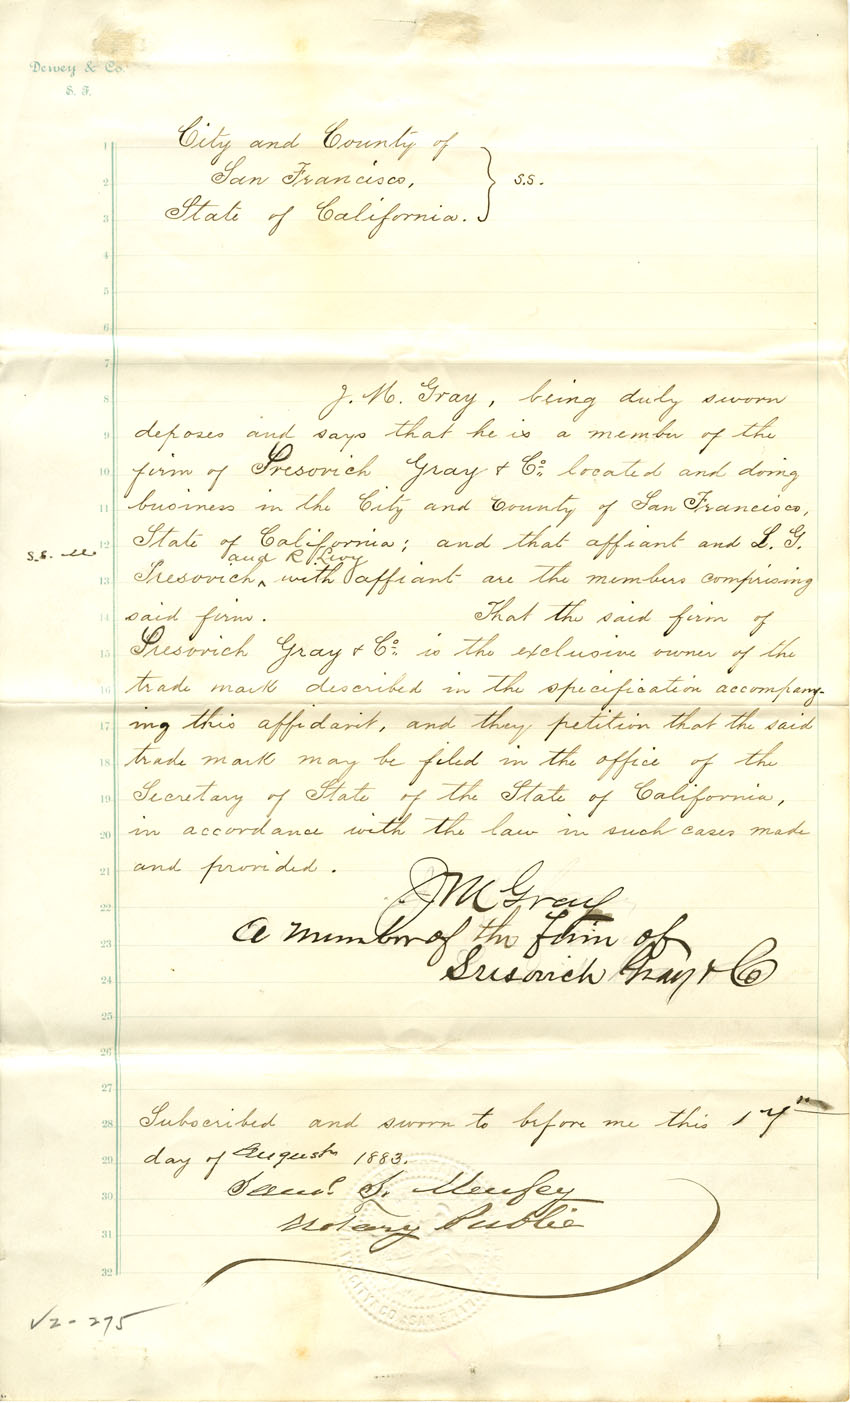 Dewey & Co.
S. F.
City and County of
San Francisco,
State of California.
s.s.
1
2
3
4
5
6
7
8
9
10
11
12
13
14
15
16
17
18
19
20
21
22
23
24
25
26
27
28
29
30
31
32
J. M. Gray, being duly sworn
deposes and says that he is a member of the
firm of Sresovich Gray & Co. located and doing
business in the City and County of San Francisco,
State of California; and that affiant and L. G.
and R. Levy
Sresovich ^ with affiant are the members comprising
said firm. That the said firm of
Sresovich Gray & Co. is the exclusive owner of the
trade mark described in the specification accompany-
ing this affidavit, and they petition that the said
trade mark may be filed in the office of the
Secretary of State of the State of California,
in accordance with the law in such cases made
and provided.
J M Gray
A member of the firm of
Sresovich Gray & Co
Subscribed and sworn to before me this 17"
day of August 1883.
Saml. S. Murfey
Notary Public
√2-275